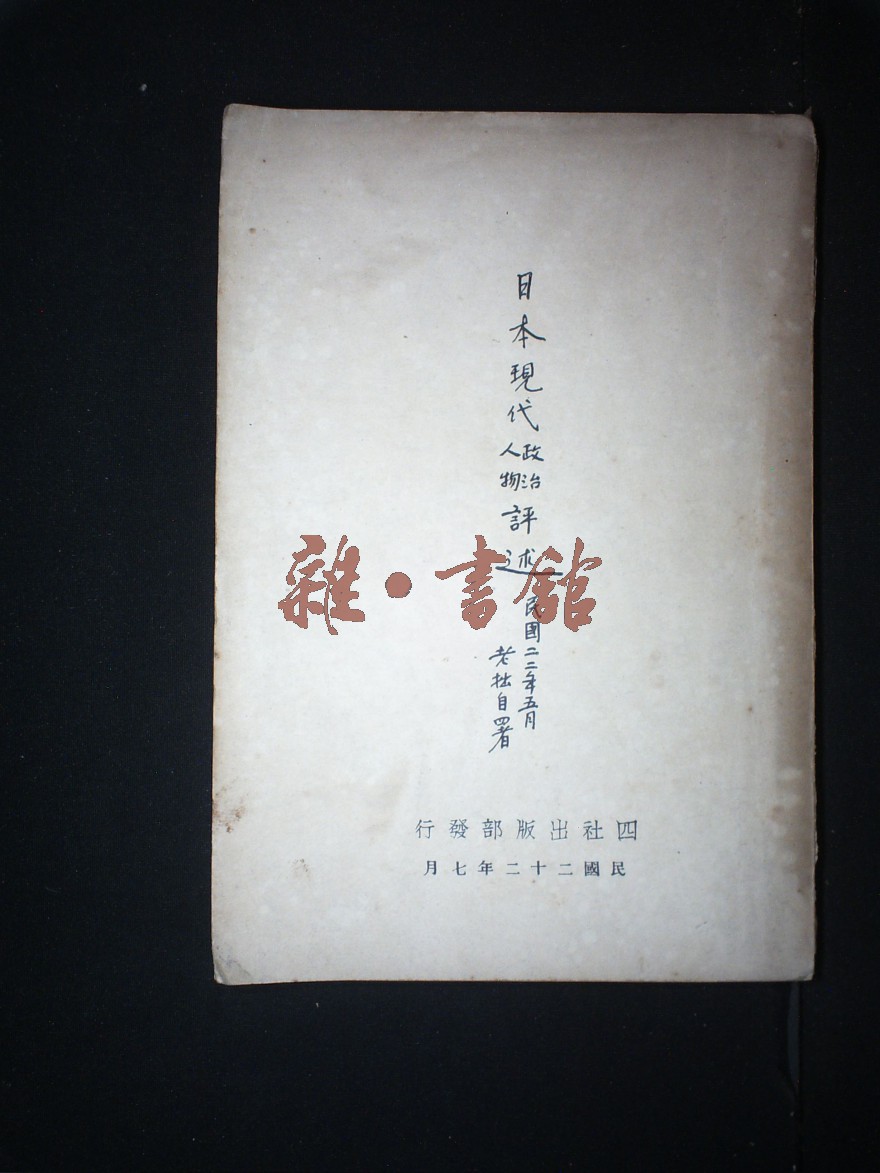 日本現代政治人物評述
民國二二年五月
老拙自署
雜·書館
四社出版部發行
民國二十二年七月